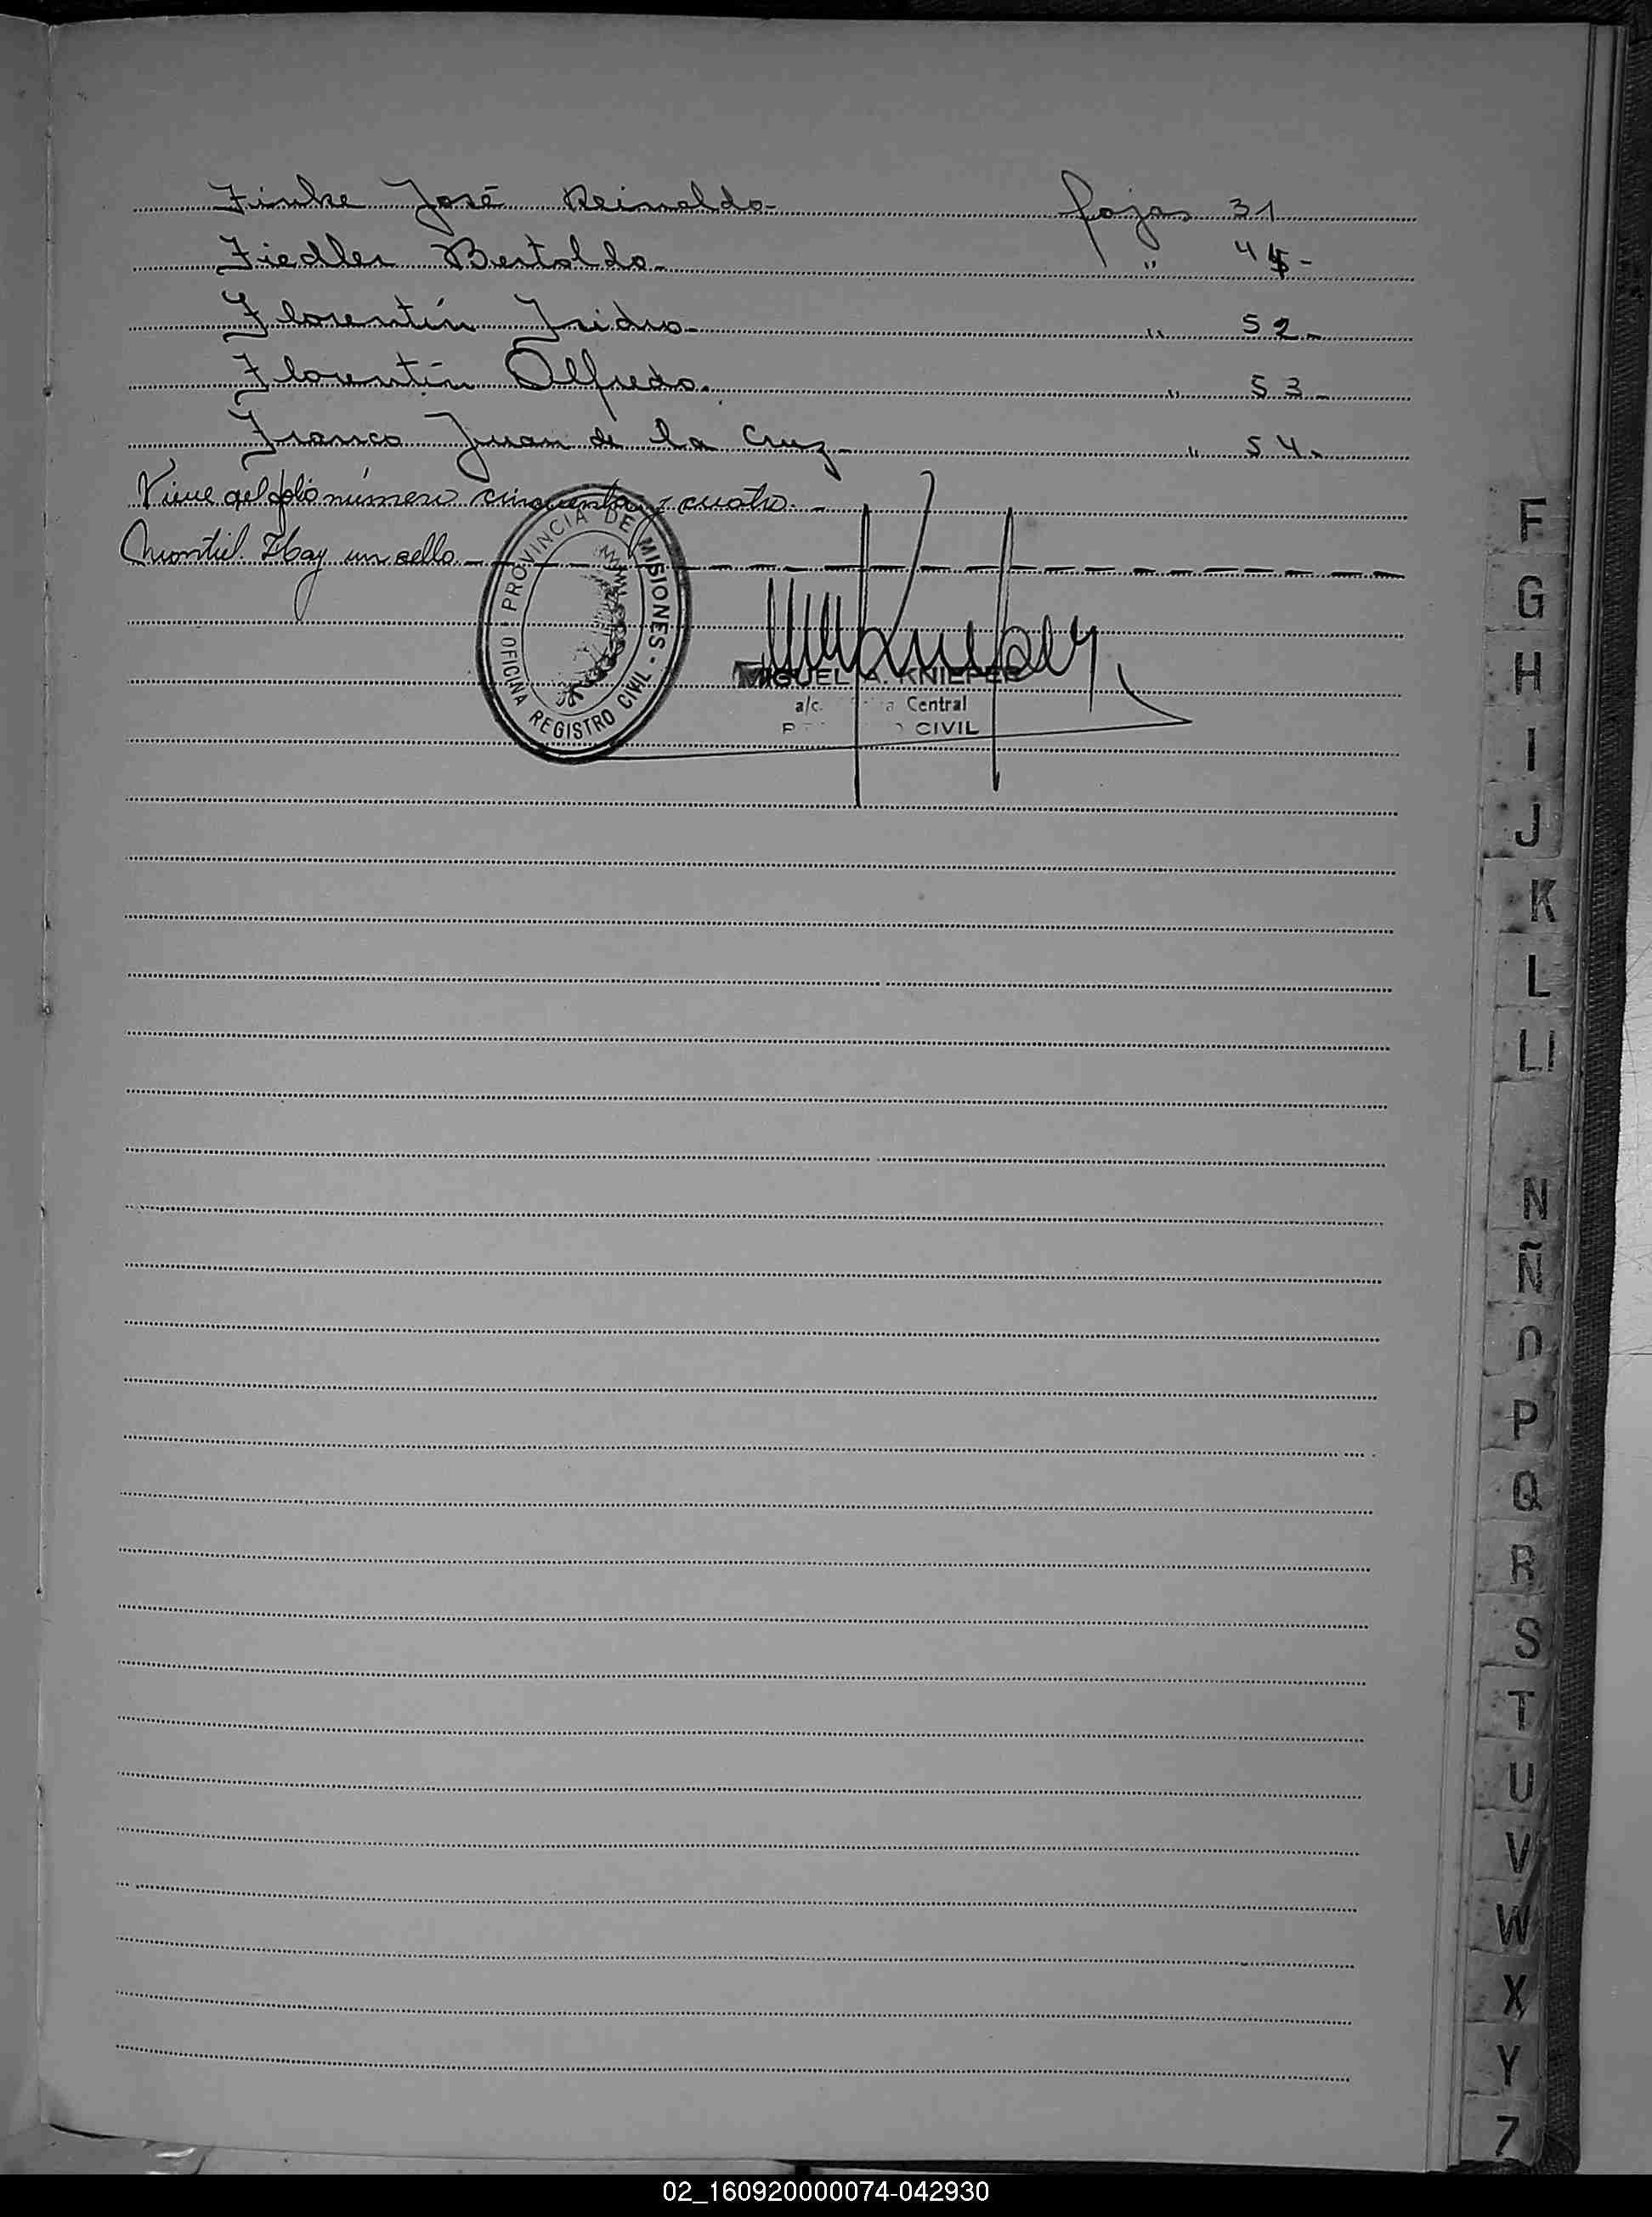 Finke José Reinaldo- fojas 31
Fiedler Bertoldo- " 45-
Florentín Isidro- " 52-
Florentín Alfredo. " 53-
Franco Juan de la Cruz- " 54-
Viene del folio número cincuenta y cuatro. -
Montiel. Hay un sello. -
PROVINCIA DE MISIONES - OFICINA REGISTRO CIVIL -
MIGUEL A. KNIEPER
a/c. Central
CIVIL
F
G
H
I
J
K
L
Ll
N
Ñ
O
P
Q
R
S
T
U
V
W
X
Y
Z
02_160920000074-042930